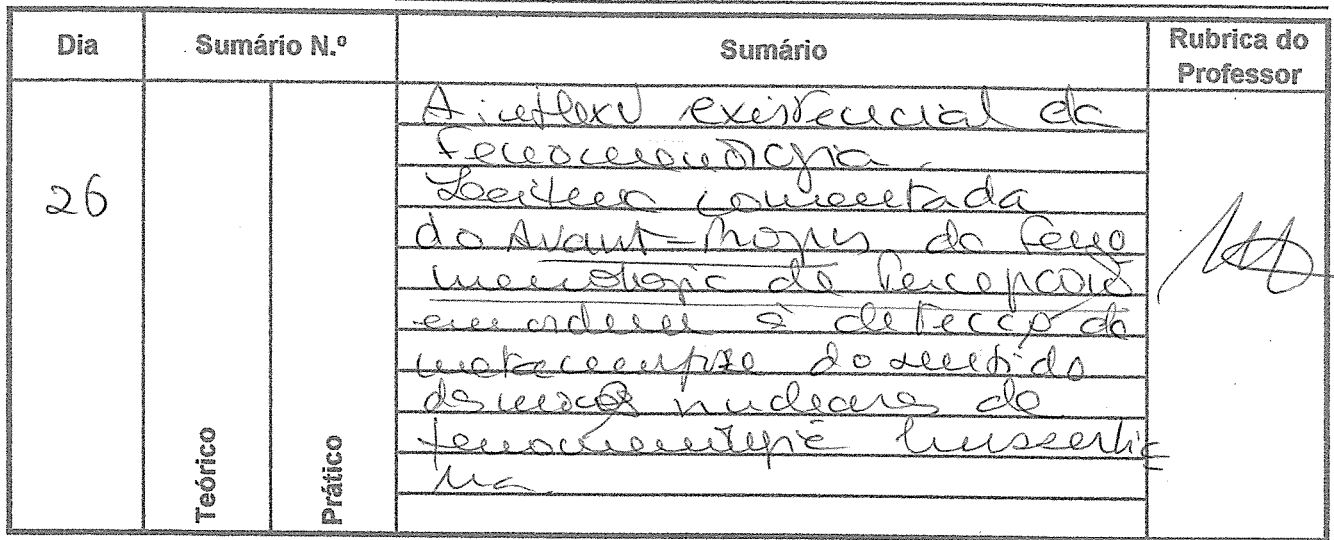 Dia
Sumário N.º
Sumário
Rubrica do
Professor
26
Teórico
Prático
A inflexão existencial da
Fenomenologia.
Leitura comentada
do Avant-Propos da Feno
menologia da Percepção
em ordem à detecção da
metamorfose do sentido
das noções nucleares da
fenomenologia husserlia
na